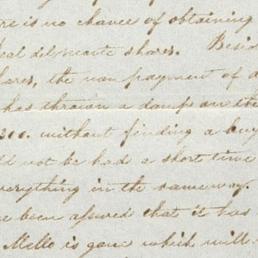 re is no chance of obtaining
eal del monte shares. Besid
hares, the non payment of d
has thrown a damp on the
300. without finding a buy
ld not be had a short time
everything in the same way.
e been assured that it has
Mello is gone which will